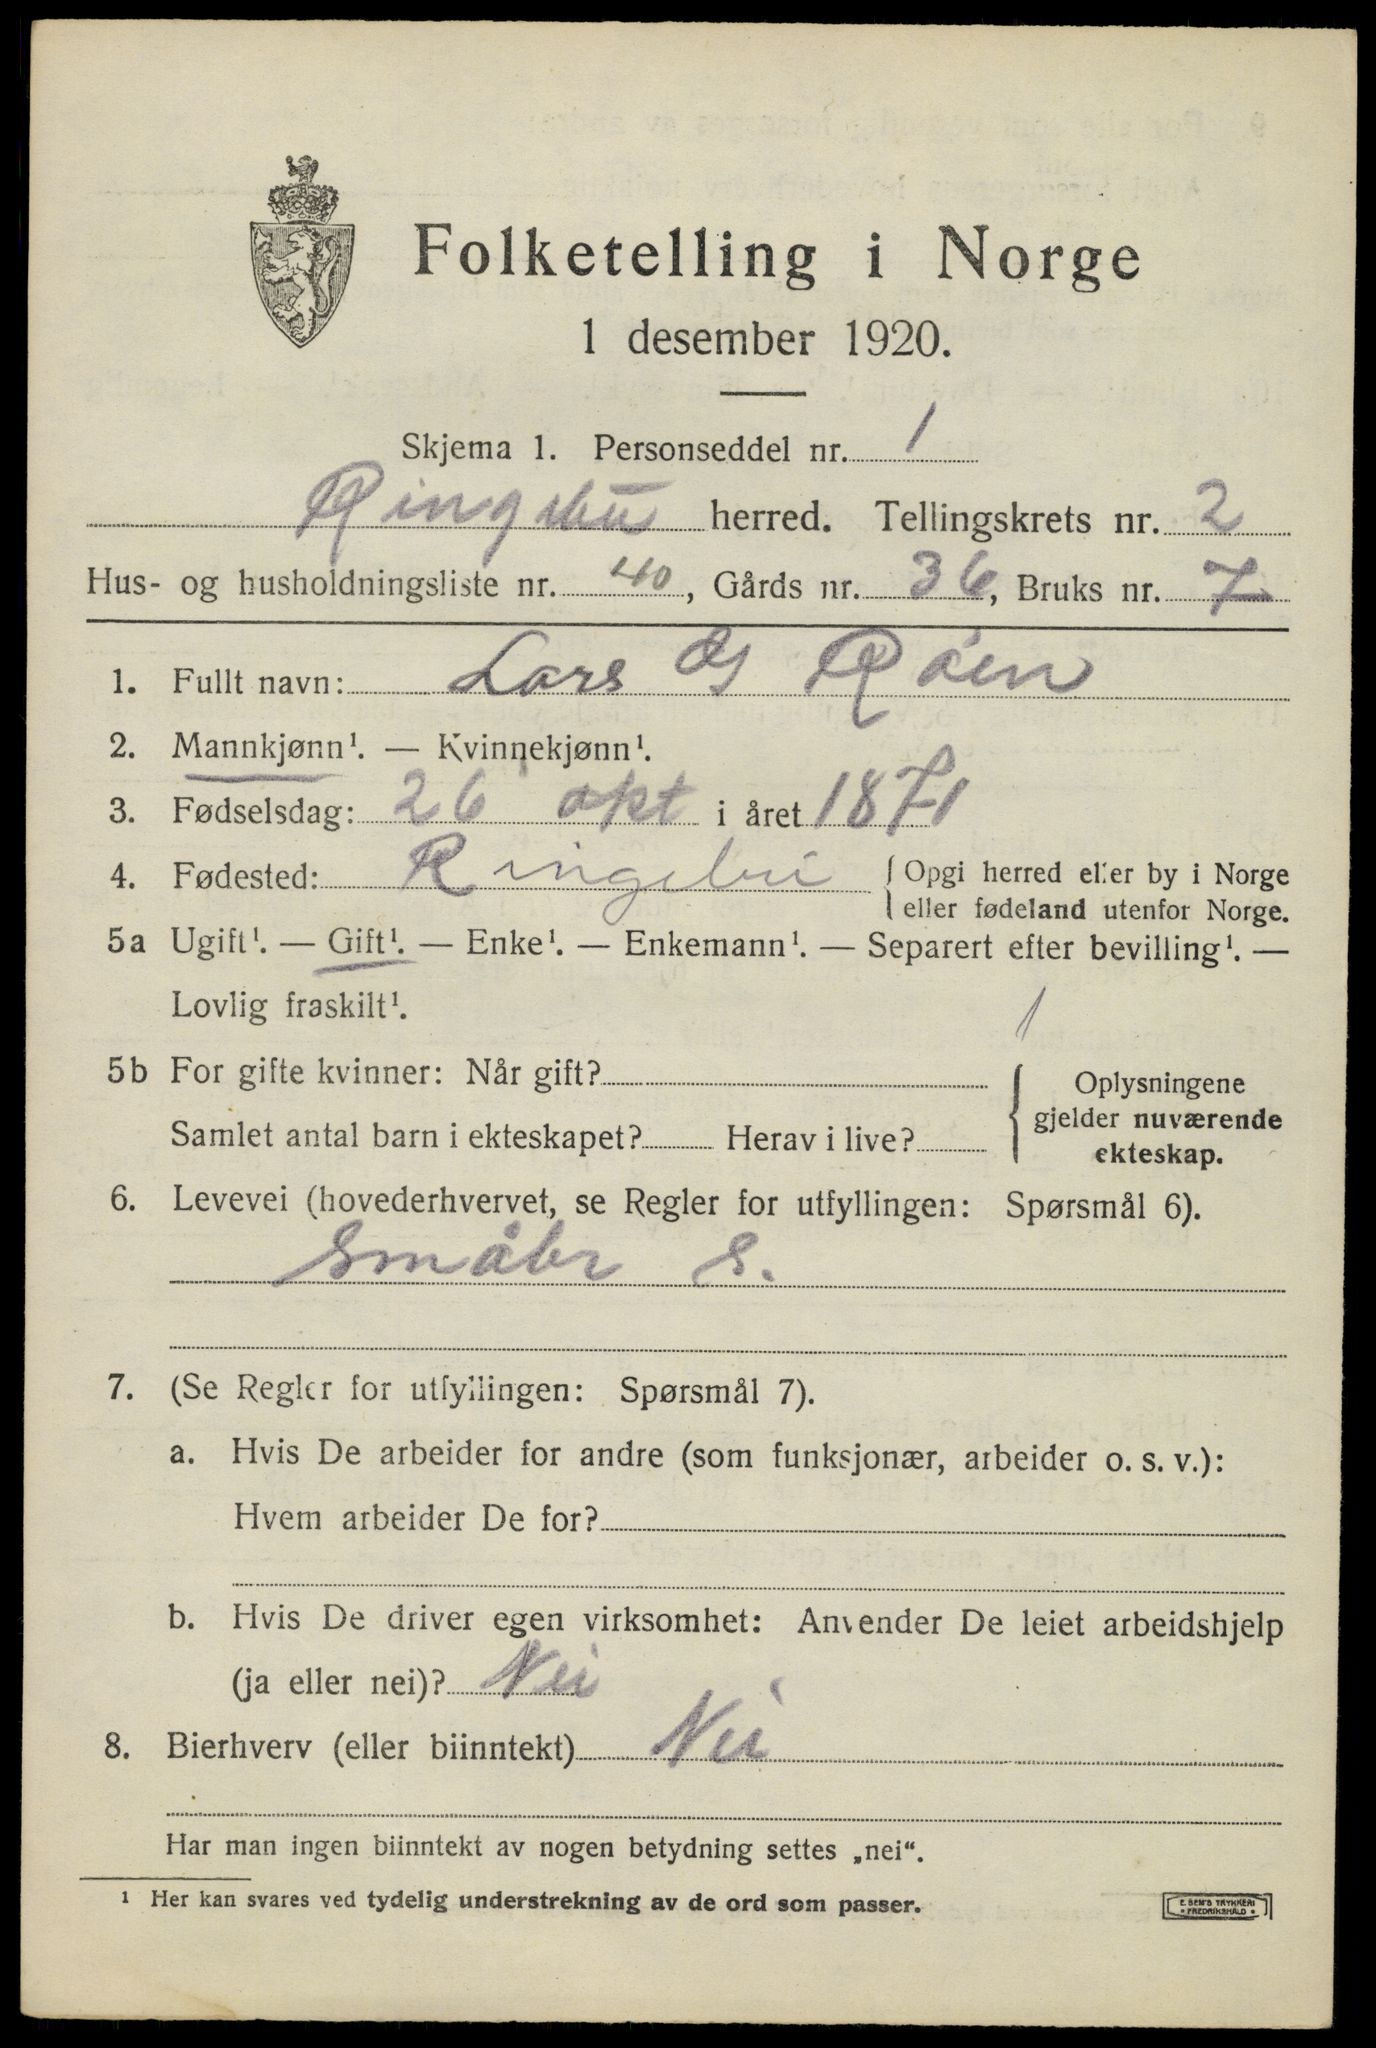 Folketelling i Norge
1 desember 1920.
Skjema 1. Personseddel nr. 1
Ringebu herred. Tellingskrets nr. 2
Hus- og husholdningsliste nr. 40, Gårds nr. 36, Bruks nr. 7
1. Fullt navn: Lars Røen
2. Mannkjønn¹. — Kvinnekjønn¹.
3. Fødselsdag: 26 okt i året 1871
4. Fødested: Ringebu { Opgi herred eller by i Norge
eller fødeland utenfor Norge.
5a Ugift¹. — Gift¹. — Enke¹. — Enkemann¹. — Separert efter bevilling¹. —
Lovlig fraskilt¹.
1
5b For gifte kvinner: Når gift?
Samlet antal barn i ekteskapet? Herav i live?
Oplysningene
gjelder nuværende
ekteskap.
6. Levevei (hovederhvervet, se Regler for utfyllingen: Spørsmål 6).
Småbr S.
7. (Se Regler for utfyllingen: Spørsmål 7).
a. Hvis De arbeider for andre (som funksjonær, arbeider o. s. v.):
Hvem arbeider De for?
b. Hvis De driver egen virksomhet: Anvender De leiet arbeidshjelp
(ja eller nei)? Nei
8. Bierhverv (eller biinntekt) Nei
Har man ingen biinntekt av nogen betydning settes „nei“.
¹ Her kan svares ved tydelig understrekning av de ord som passer.
E. SEM'S TRYKKERI
• FREDRIKSHALD •